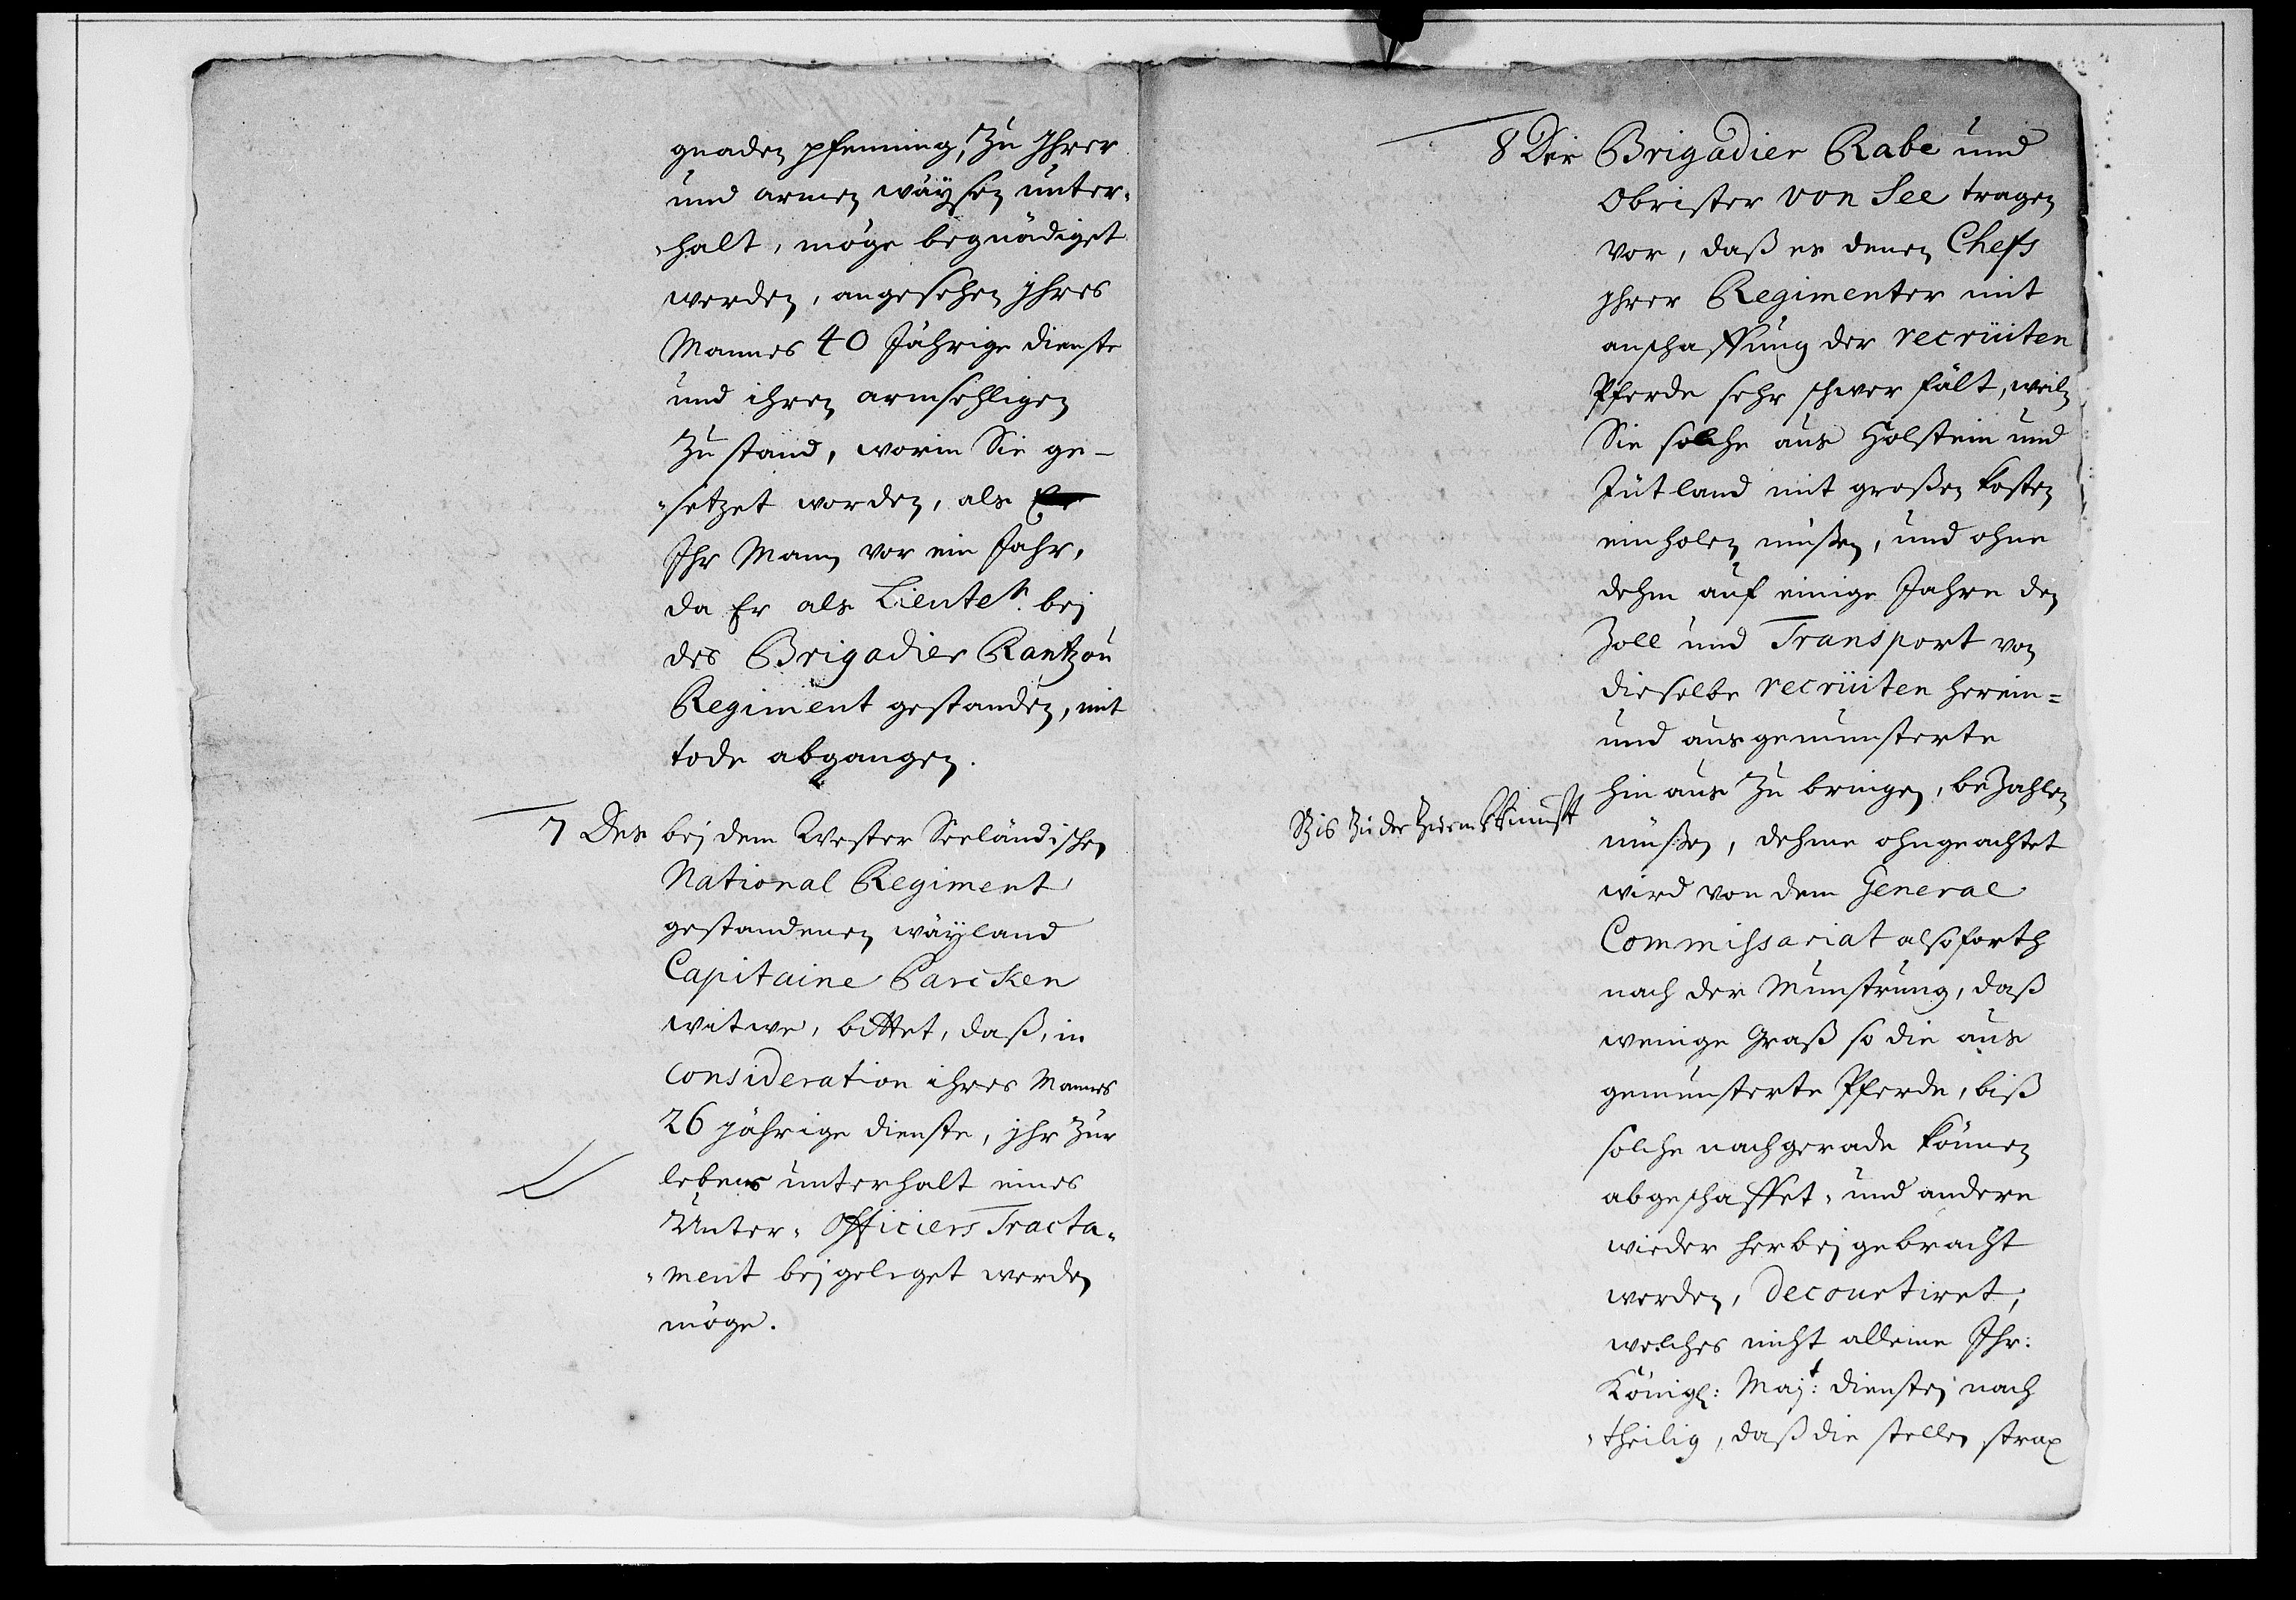 gnaden pfenning, Zu Ihrer
und armen wäÿsen unter-
-halt, möge begnädiget
werden, angesehen ihres
Mannes 40 Jährige dienste
und ihren armsehligen
Zustand, worin Sie ge-
-setzet worden, als
Ihr Mann vor ein Jahr,
da Er als Lieutet. bej
des Brigadier Rantzou
Regiment gestanden, mit
tode abgangen.
7 Des bej dem Wester Seeländischen
National Regiment
gestandenen wäÿland
Capitaine Parcken
witwe, bittet, daß, in
consideration ihres Mannes
26 jährige dienste, ihr zur
lebens unterhalt eines
Unter- Officiers Tracta-
-ment bejgeleget werden
möge.
8 Der Brigadier Rabe und
Obrister von See tragen
vor, daß es denen Chefs
ihrer Regimenter mit
anschaffung der recruiten
Pferde sehr schwer fält, weiln
Sie solche aus Holstein und
Jütland mit großen kosten
einholen müßen, und ohne
dehm auf einige Jahre den
Zoll und Transport von
dieselbe recruiten herein=
und ausgemunsterte
hinaus Zu bringen, beZahlen
Bis Zu der Zurückkunfft
müßen, dehme ohngeachtet
wird von dem General
Commissariat alsoforth
nach der Munstrung, daß
wenige Graß so die aus
gemunsterte Pferde, biß
solche nachgerade können
abgeschaffet, und andere
wieder herbej gebracht
werden, decourtiret,
welches nicht alleine Ihr:
Königl: Majt: dienste nach
-theilig, daß die stellen strax